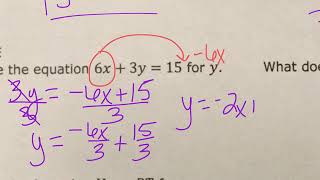 -6x
e the equation 6x + 3y = 15 for y. What doe
3y = -6x+15
3 3
y = -6x/3 + 15/3 y=-2x